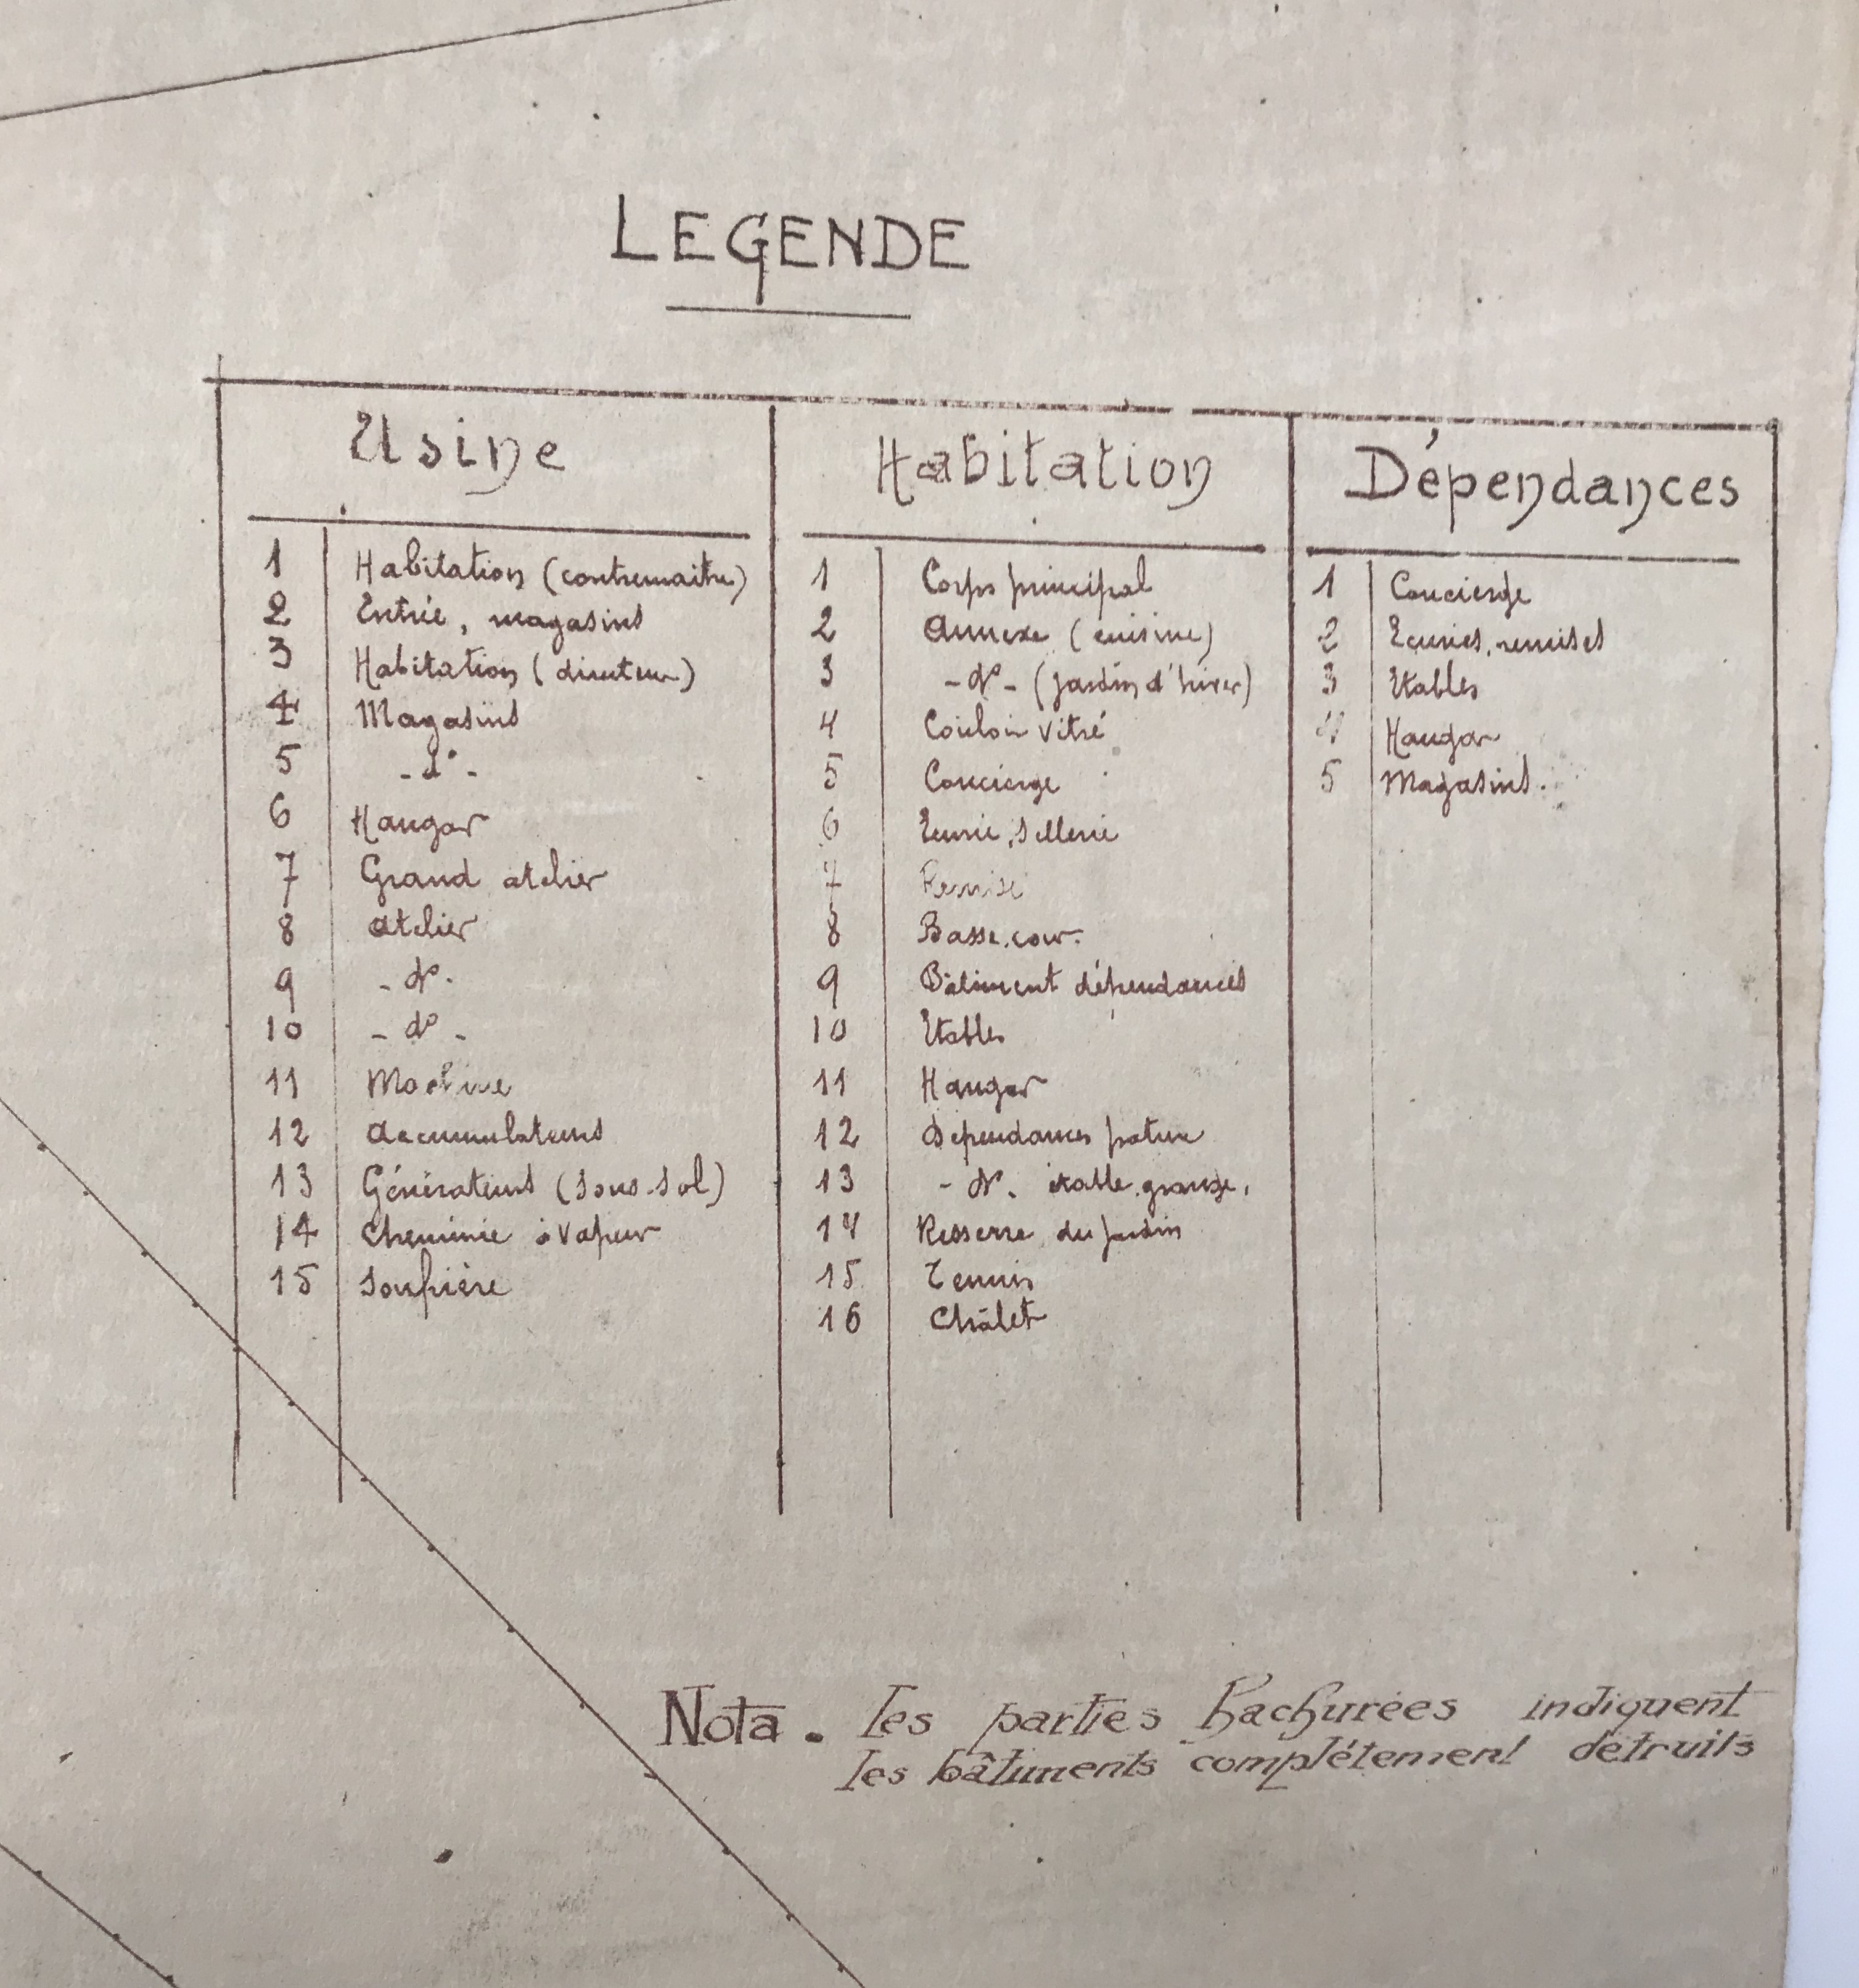 LEGENDE
Usine
1 Habitation (contremaitre)
2 Entrée, magasins
3 Habitation (directeur)
4 Magasins
5 - d° -
6 Hangar
7 Grand atelier
8 atelier
9 - d° -
10 - d° -
11 Machine
12 accumulateurs
13 Générateurs (sous-sol)
14 Cheminée à vapeur
15 Soupière
Habitation
1 Corps principal
2 Annexe (cuisine)
3 - d° - (jardin d'hiver)
4 Couloir vitré
5 Concierge
6 Ecurie, sellerie
7 Remise
8 Basse-cour
9 Bâtiment dépendances
10 Etables
11 Hangar
12 Dépendances pature
13 - d° - étable, grange,
14 Resserre du jardin
15 Tennis
16 Châlet
Dépendances
1 Concierge
2 Ecuries, remises
3 Etables
4 Hangar
5 Magasins.
Nota. Les parties hachurées indiquent
les bâtiments complétement détruits